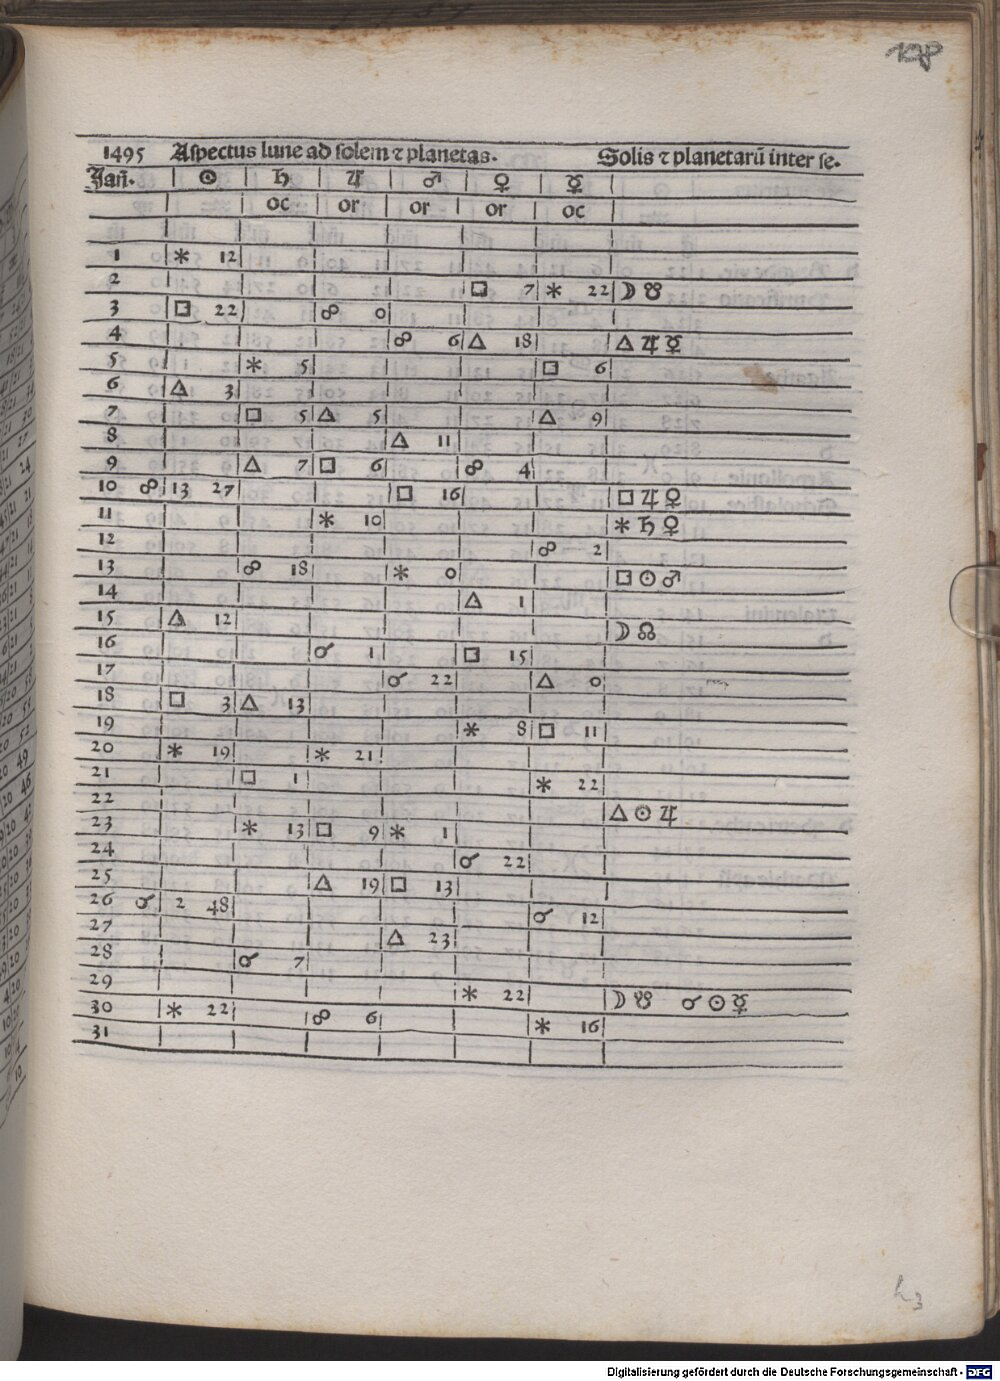 128
1495 Aſpectus lune ad ſolem ⁊ planetas. Solis ⁊ planetarū inter ſe.
Jañ. ☉ ♄ ♃ ♂ ♀ ☿
oc or or or oc
1 ✱ 12
2 □ 7 ✱ 22 ☽ ☋
3 □ 22 ☍ 0
4 ☍ 6 △ 18 △ ♃ ☿
5 ✱ 5 □ 6
6 △ 3
7 □ 5 △ 5 △ 9
8 △ 11
9 △ 7 □ 6 ☍ 4
10 ☍ 13 27 □ 16 □ ♃ ♀
11 ✱ 10 ✱ ♄ ♀
12 ☍ 2
13 ☍ 18 ✱ 0 □ ☉ ♂
14 △ 1
15 △ 12 ☽ ☊
16 ☌ 1 □ 15
17 ☌ 22 △ 0
18 □ 3 △ 13
19 ✱ 8 □ 11
20 ✱ 19 ✱ 21
21 □ 1 ✱ 22
22 △ ☉ ♃
23 ✱ 13 □ 9 ✱ 1
24 ☌ 22
25 △ 19 □ 13
26 ☌ 2 48 ☌ 12
27 △ 23
28 ☌ 7
29 ✱ 22 ☽ ☋ ☌ ☉ ☿
30 ✱ 22 ☍ 6 ✱ 16
31
h3
Digitalisierung gefördert durch die Deutsche Forschungsgemeinschaft - DFG